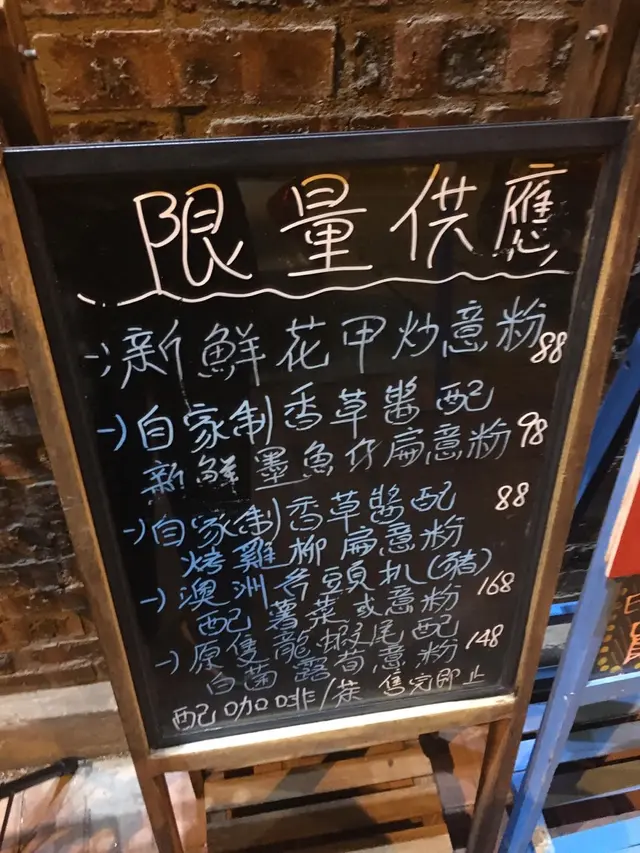 限量供應
-)新鮮花甲炒意粉 88
-)自家制香草醬配
新鮮墨魚仔扁意粉 98
-)自家制香草醬配 88
烤雞柳扁意粉
-)澳洲斧頭扒(豬)
配薯菜或意粉 168
-)原隻龍蝦尾配 148
白菌露荀意粉
配咖啡/茶 售完即止